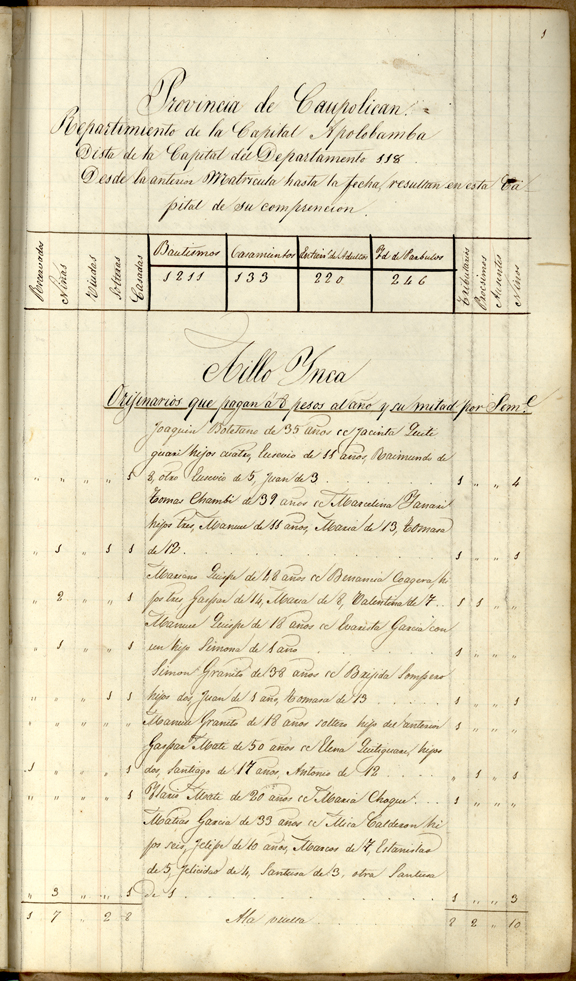 1
Provincia de Caupolican.
Repartimiento de la Capital Apolobamba
Dista de la Capital del Departamento 118
Desde la anterior Matricula hasta la fecha, resultan en esta Ca
pital de su comprencion.
Reservados Niñas Viudas Solteras Casadas Bautismos Casamientos Entierrs. de Adultos Yd. de Parbulos Tributarios Procsimos Ausentes Niños
1211 133 220 246
Aillo Ynca
Orijinarios que pagan á 8 pesos al año y su mitad por Seme.
Joaquin Boletano de 35 años cc Jacinta Quite
quari hijos cuatro, Eusevio de 11 años, Raimundo de
" " " " 1 8, otro Eusevio de 5, Juan de 3 1 " " 4
Tomas Chambi de 39 años cc Marcelina
hijos tres, Manuel de 11 años, Maria de 13, Tomasa
" 1 " 1 1 de 12. 1 " " 1
Mariano Quispe de 48 años cc hi
" 2 " " 1 jos tres, Gaspar de 14, Maria de 8, Valentina de 7 1 1 " "
Manuel Quispe de 18 años cc Evarista Garcia con
" 1 " " 1 un hijo Simona de 1 año 1 " " "
Simon Granito de 38 años cc Brijida Sompero
" " " 1 1 hijos dos, Juan de 1 año, Tomasa de 13 1 " " 1
" " " " " Manuel Granito de 18 años soltero hijo del anterior 1 " " "
Gaspar Mate de 50 años cc Elena Quitiquari, hijos
1 " " " 1 dos, Santiago de 17 años, Antonio de 12 " 1 " 1
" " " " 1 Ylario Mate de 20 años cc Maria Choque 1 " " "
Matias Garcia de 33 años cc Mica Calderon hi
jos seis, Felipe de 10 años, Marcos de 7, Estanislao
de 5, Felicidad de 4, Santusa de 3, otra Santusa
" 3 " " 1 de 1 1 " " 3
1 7 " 2 8 A la vuelta 8 2 " 10